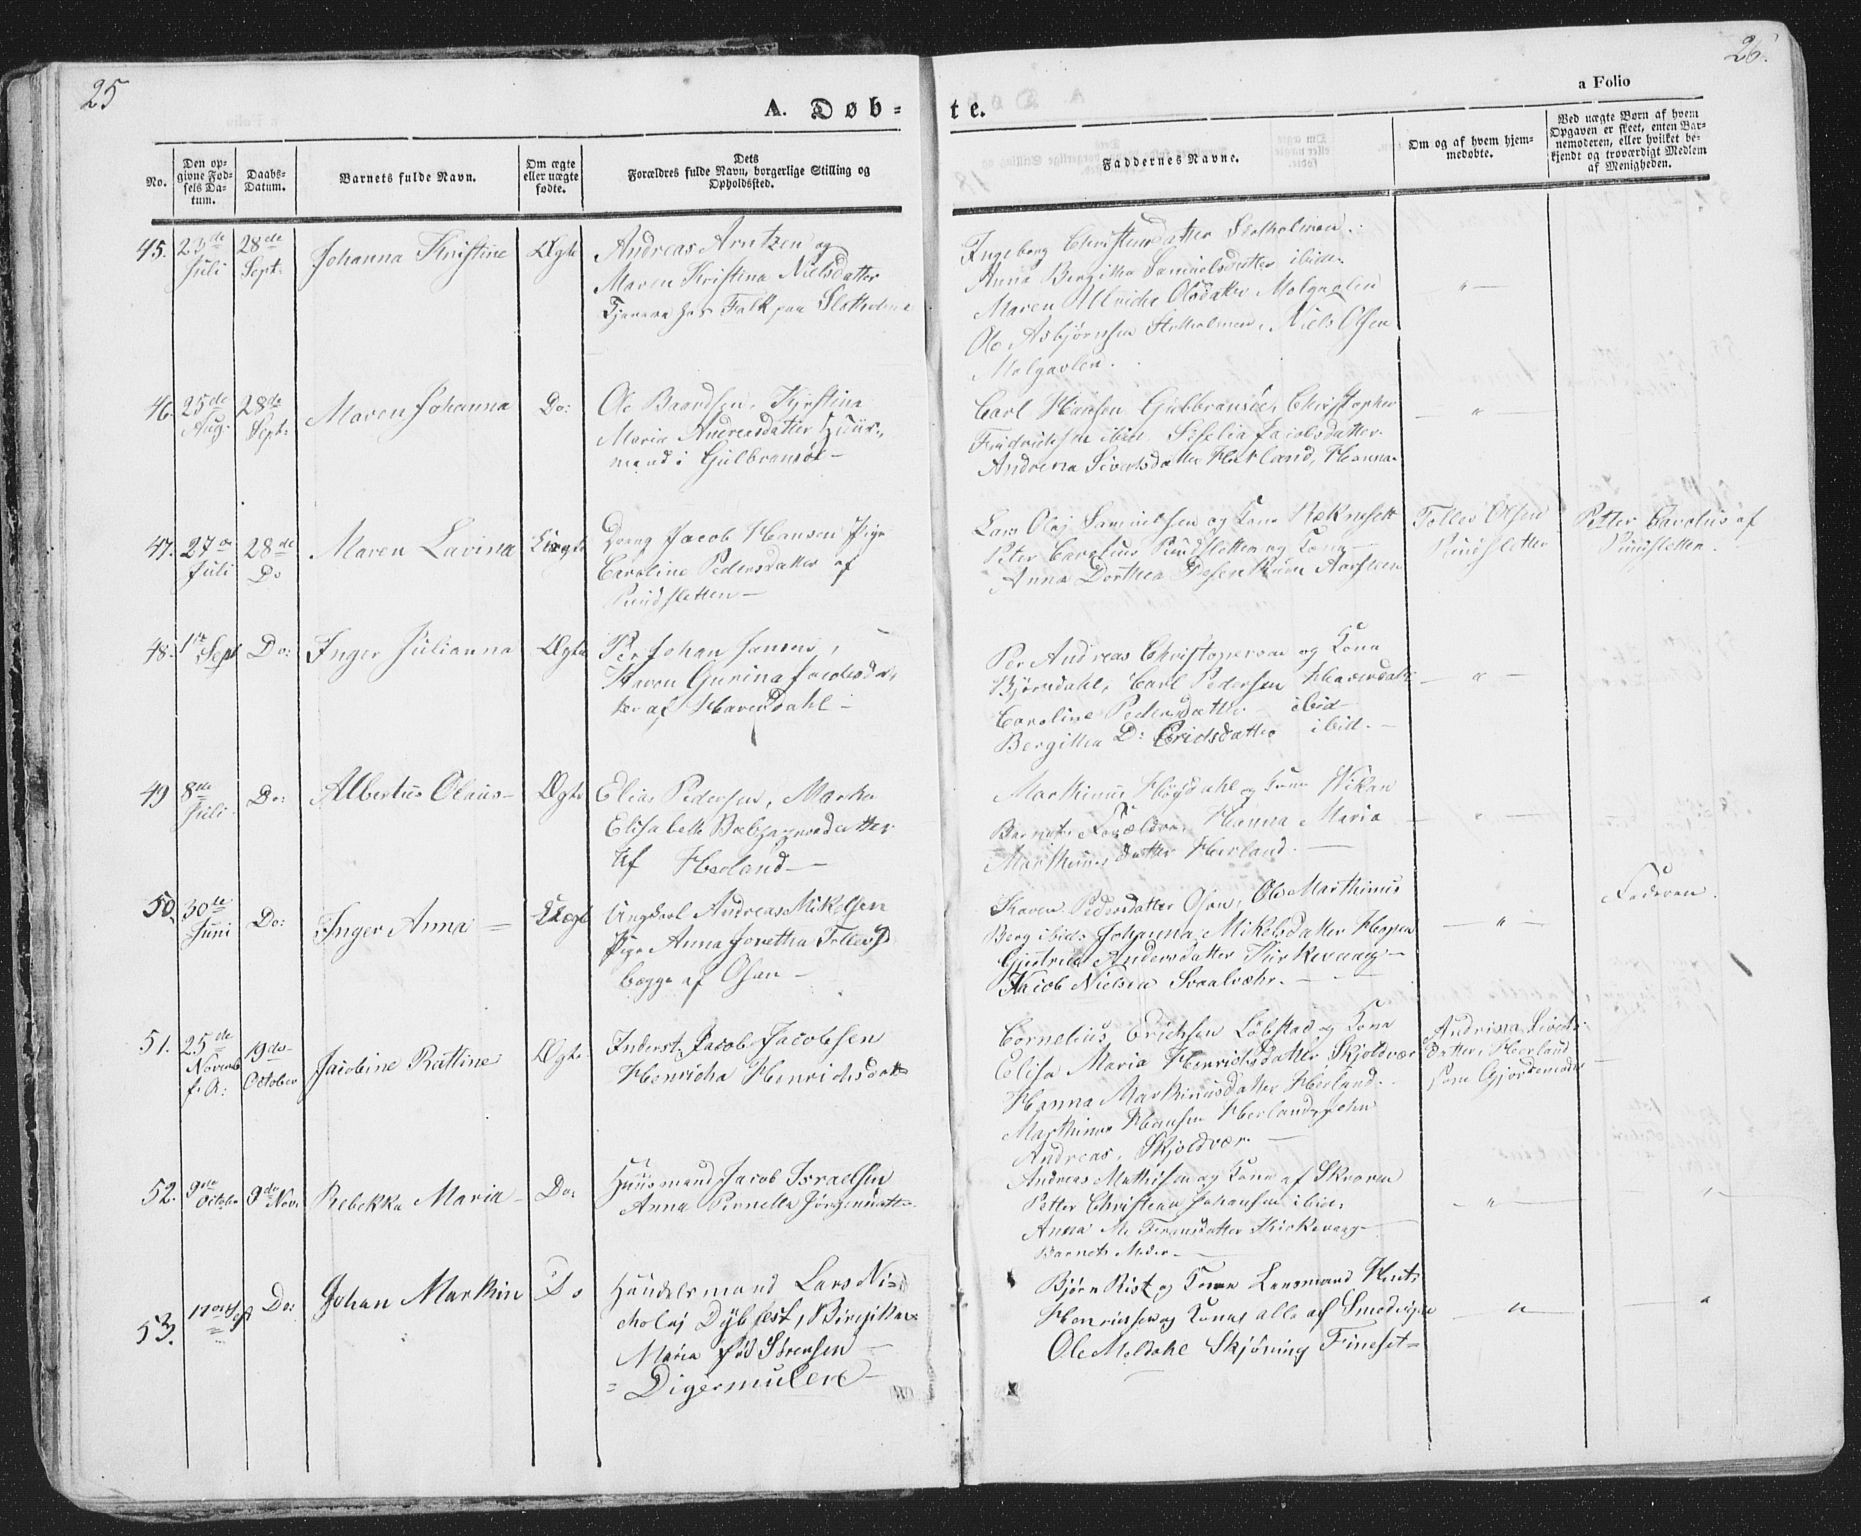 25
26.
a Folio
A. Døb-
te.
No.
Den op-
givne Fød-
sels Da-
tum.
Daabs-
Datum.
Barnets fulde Navn.
Om ægte
eller uægte
fødte.
Dets
Forældres fulde Navn, borgerlige Stilling og
Opholdssted.
Faddernes Navne.
Om og af hvem hjem-
medøbte.
Ved uægte Børn af hvem
Opgaven er skeet, enten Bar-
nemoderen, eller hvilket be-
kjendt og troværdigt Medlem
af Menigheden.
45. 23de Juli
28de Sept:
Johanna Kristine
Ægte
Andreas Arntzen og
Maren Kristina Nielsdatter
Folk paa
Ingeborg Christensdatter
Anna Bergitha Samuelsdatter ibid.
Maren Ulricha Olsdatter Molgavlen
Ole Asbjørnsen Niels Olsen
Molgavlen.
46. 25de Aug.
28de Sept:
Maren Johanna
Do:
Ole Baardsen, Kirstina
Maria Andreasdatter Huus-
mand i Gulbransøe
Carl Hansen Gulbransøe, Christopher
ibid. Jacobsdatter
Andrina Sivertsdatter Herland, Hanna
47. 27de Juli
28de Do
Maren Lavina
Uægte
Dreng Jacob Hansen Pige
Caroline Pedersdatter af
Rundsletten
Lars Olaj Samuelsen og Kone
Peter Carolius Rundsletten og Kone
Anna Dorthea Aarsteen
Tollef Olsen
Rundsletten
Petter Carolius af
Rundsletten.
48. 1ste Sept
Do:
Inger Julianna
Ægte
Per Johan Jansen,
Karen Gurina Jacobsdat-
ter af Haversdahl
Per Andreas Christopersen og Kone
Bjørndahl, Carl Pedersen Haversdahl
Caroline Pedersdatter ibid
Bergitha D: Ericsdatter ibid.
49 8de Juli
Do:
Albertus Olaus
Ægte
Elias Pedersen, Martha
Elisabeth
Af Herland
Marthinus Høgdahl og Kone Wikan
Barnets Forældre, Hanna Maria
Marthinusdatter Herland.
50. 30te Juni
Do:
Inger Anna
Uægte
Ungkarl Andreas Mikelsen
Pige Anna Jonetha Tollefsd
begge af Osan
Karen Pedersdatter Osan, Ole Marthinus
Berg ibid. Johanna Mikelsdatter Hopen
Andersdatter Kirkevaag
Jacob Nielsen Svaalvæhr.
Faderen.
51. 25de Novemb f. A:
19de October
Jacobine Rattine
Ægte
Inderst Jacob Jacobsen
Henricha Henrichsdatt
Cornelius Erichsen Løbstad og Kone
Elisa Maria Henrichsdatter Skjoldvær
Hanna Marthinusdatter Herland.
Marthinus Hansen Herland, John
Andreas, Skjoldvær.
Andrina Siverts-
datter, Herland
som Gjordemoder
52. 9de October
9de Nov:
Rebekka Maria
Do:
Huusmand Jacob Israelsen
Anna Pernella Jørgensdatt
Andreas Mathisen og Kone af Skroven
Petter Christian Johansen ibid.
Anna M. Kirkevaag
Barnets Moder
53.
Do:
Johan Markin
Do
Handelsmand Lars Ni-
cholaj Dybfest, Birgitha
Maria fød Sørensen
Digermulen
Bjørn Rist og Kone Lensmand
og Kone alle af Smedvigen
Ole Moldahl Skjøning Fineset